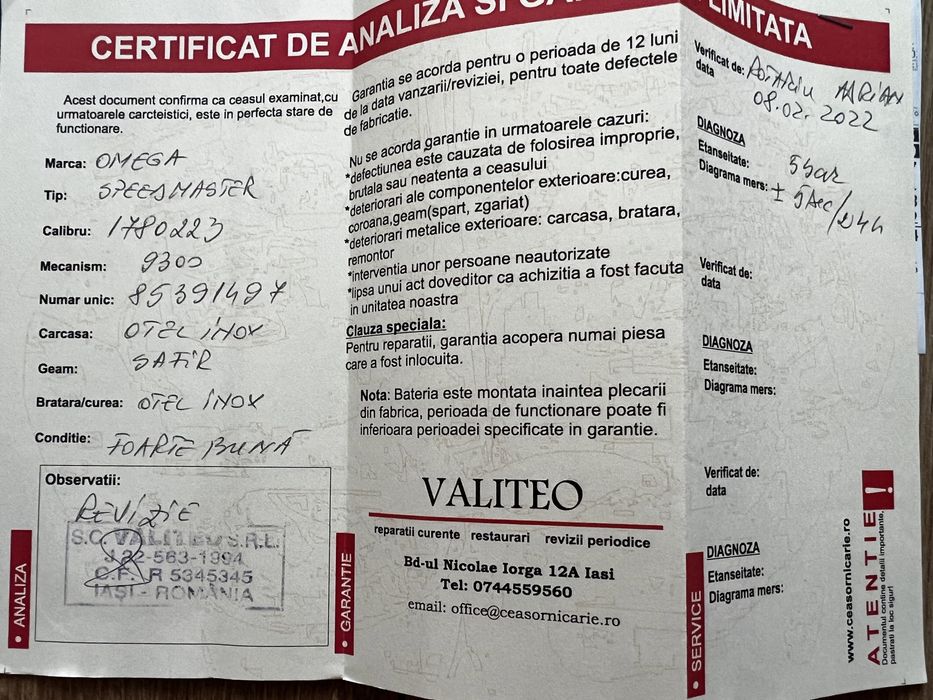 CERTIFICAT DE ANALIZA SI GA LIMITATA
Acest document confirma ca ceasul examinat,cu
urmatoarele carcteistici, este in perfecta stare de
functionare.
Marca: OMEGA
Tip: SPEEDMASTER
Calibru: 1780223
Mecanism: 9300
Numar unic: 85391497
Carcasa: OTEL INOX
Geam: SAFIR
Bratara/curea: OTEL INOX
Conditie: FOARTE BUNĂ
Observatii:
REVIZIE
S.C. VALITEO S.R.L.
J22-563-1994
C.F. R 5345345
IAȘI - ROMÂNIA
ANALIZA
Garantia se acorda pentru o perioada de 12 luni
de la data vanzarii/reviziei, pentru toate defectele
de fabricatie.
Nu se acorda garantie in urmatoarele cazuri:
*defectiunea este cauzata de folosirea improprie,
brutala sau neatenta a ceasului
*deteriorari ale componentelor exterioare:curea,
coroana,geam(spart, zgariat)
*deteriorari metalice exterioare: carcasa, bratara,
remontor
*interventia unor persoane neautorizate
*lipsa unui act doveditor ca achizitia a fost facuta
in unitatea noastra
Clauza speciala:
Pentru reparatii, garantia acopera numai piesa
care a fost inlocuita.
Nota: Bateria este montata inaintea plecarii
din fabrica, perioada de functionare poate fi
inferioara perioadei specificate in garantie.
VALITEO
reparatii curente restaurari revizii periodice
Bd-ul Nicolae Iorga 12A Iasi
Tel: 0744559560
email: office@ceasornicarie.ro
GARANTIE
Verificat de: ROTARIU ADRIAN
data 08.02.2022
DIAGNOZA
Etanseitate: 3 bar
Diagrama mers: ± 5 sec/24h
Verificat de:
data
DIAGNOZA
Etanseitate:
Diagrama mers:
Verificat de:
data
DIAGNOZA
Etanseitate:
Diagrama mers:
SERVICE
www.ceasornicarie.ro
ATENTIE!
Documentul contine detalii importante,
pastrati la loc sigur!